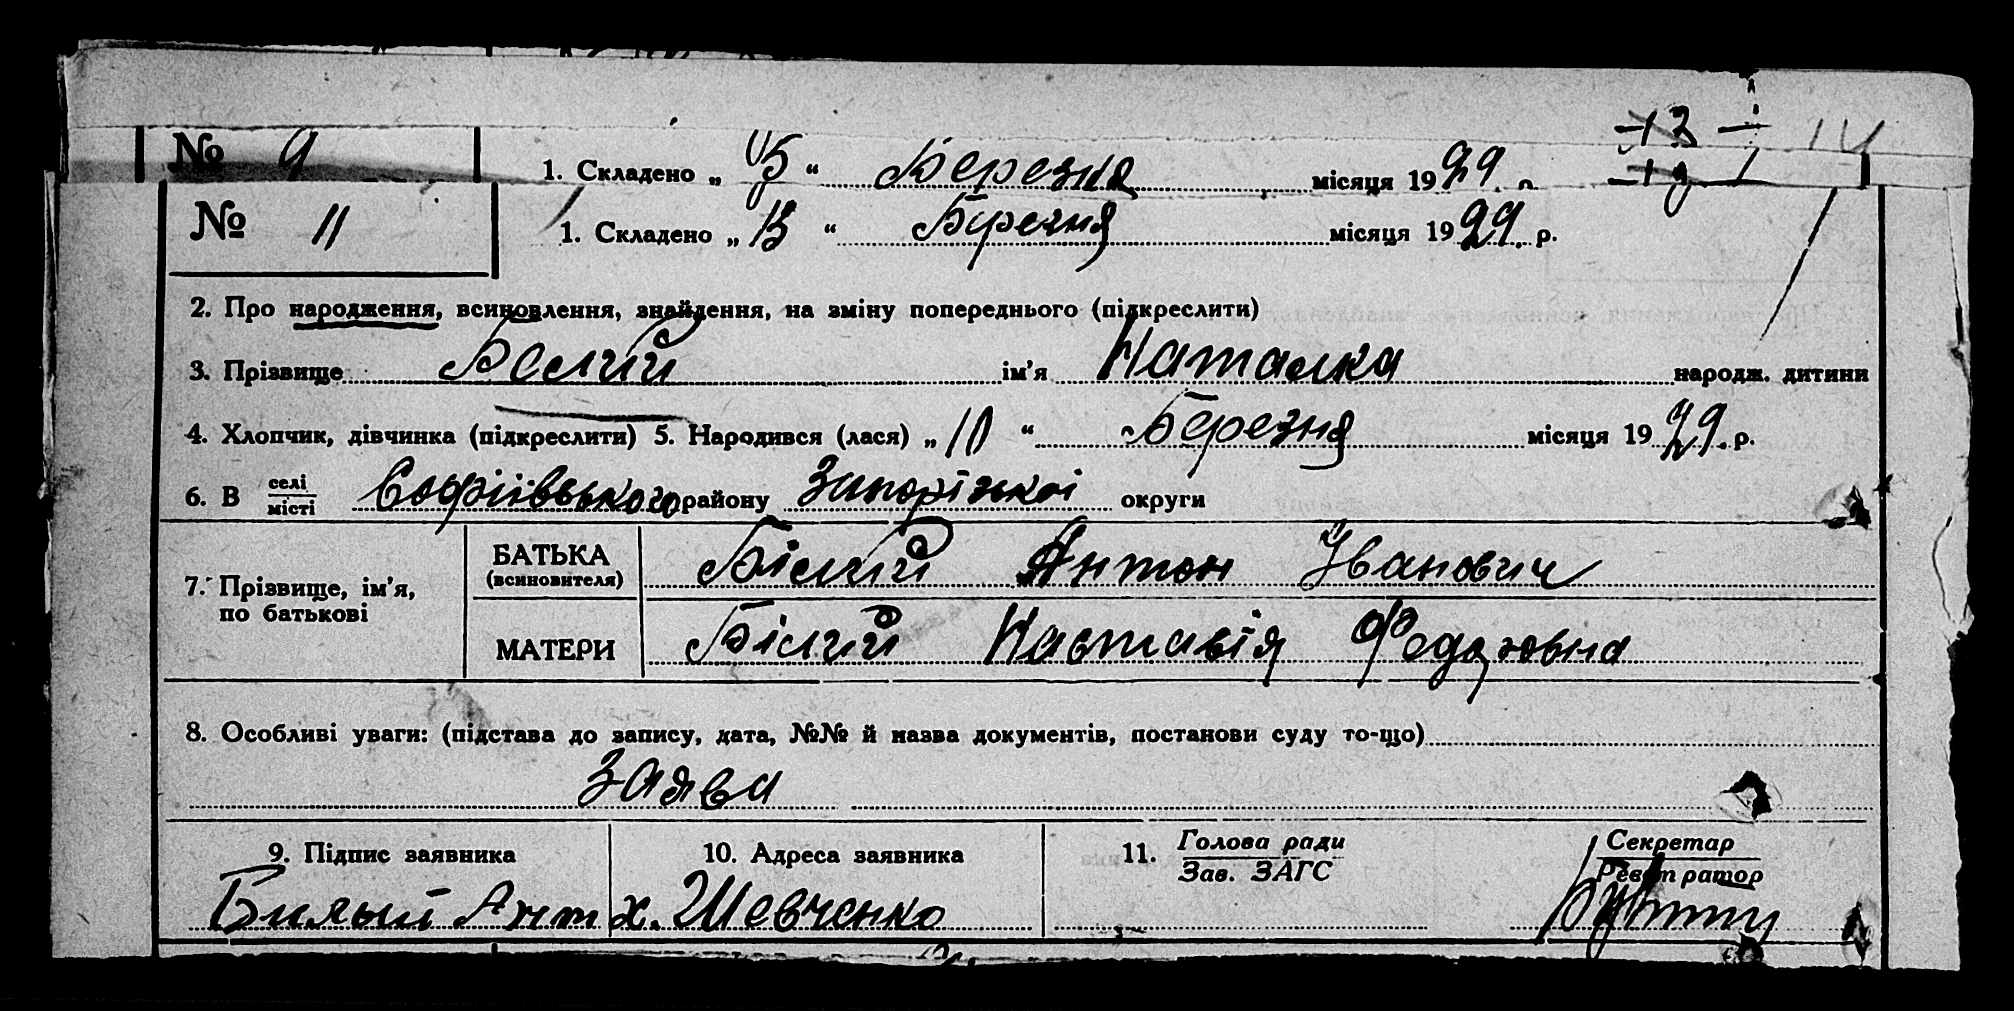 -13- 14
№ 9 1. Складено „ 5 “ Березня місяця 1929 р.
№ 11 1. Складено „ 13 “ Березня місяця 1929 р.
2. Про народження, всиновлення, знайдення, на зміну попереднього (підкреслити)
3. Прізвище Белий ім’я Наталка народж. дитини
4. Хлопчик, дівчинка (підкреслити) 5. Народився (лася) „ 10 “ Березня місяця 1929 р.
6. В селі місті Софіївського району Запорізькоі округи
7. Прізвище, ім’я, по батькові
БАТЬКА (всиновителя) Білий Антон Іванович
МАТЕРИ Білий Настасія Федоровна
8. Особливі уваги: (підстава до запису, дата, №№ й назва документів, постанови суду то-що)
Заява
9. Підпис заявника 10. Адреса заявника 11. Голова ради Секретар
Зав. ЗАГС Реєстратор
Билый Ант х. Шевченко